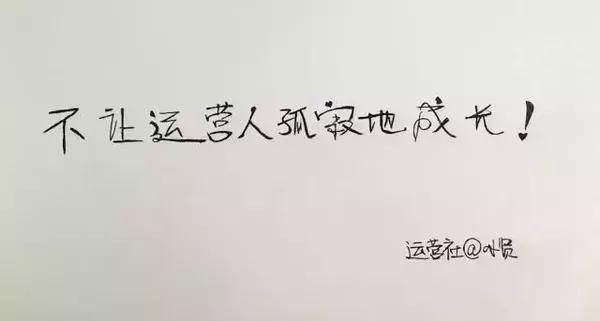 不让运营人孤寂地成长！
运营社@小贤